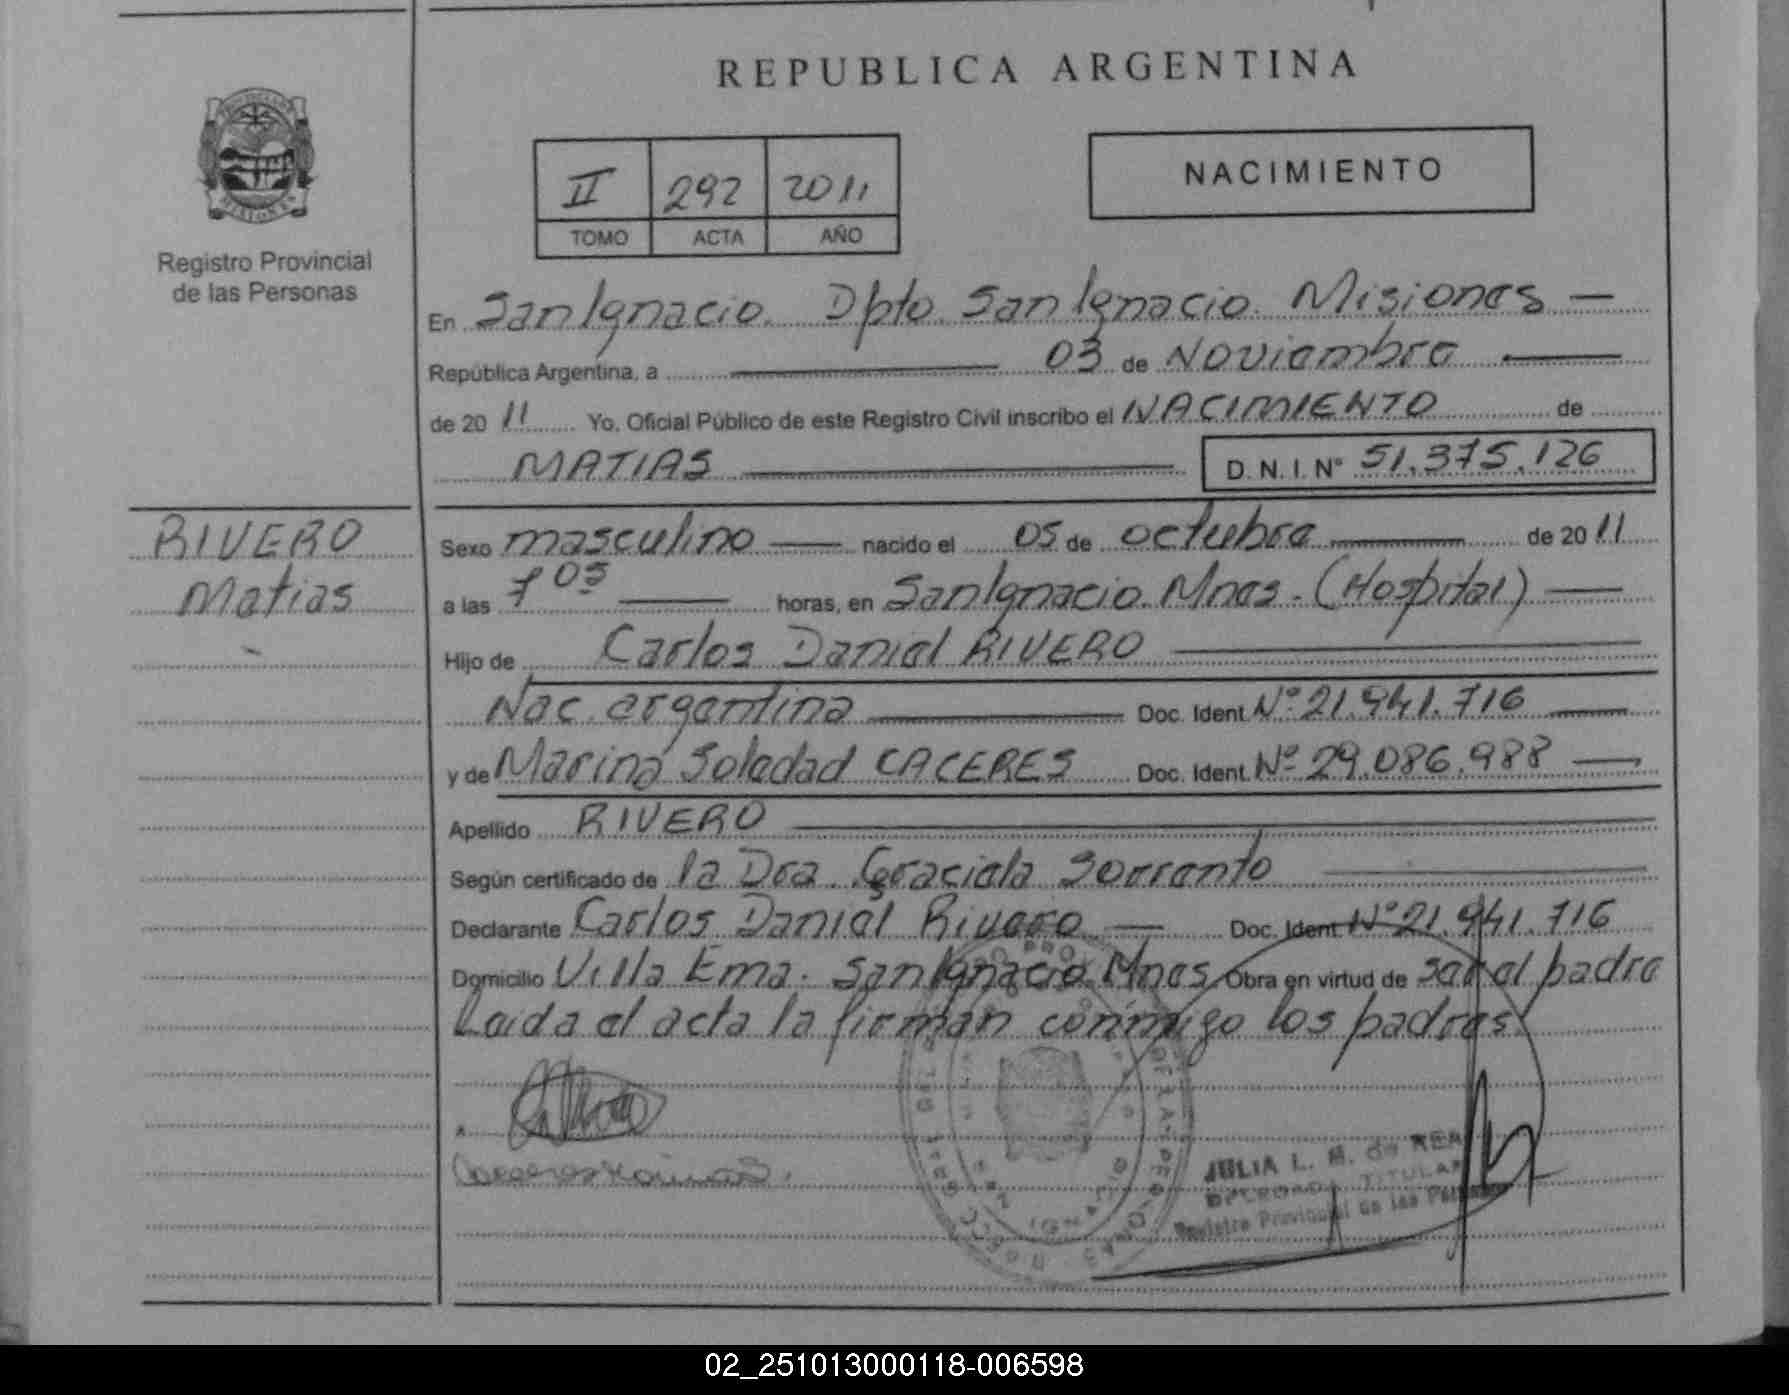 REPUBLICA ARGENTINA
II 292 2011
TOMO ACTA AÑO
NACIMIENTO
MISIONES
Registro Provincial
de las Personas
En San Ignacio. Dpto. San Ignacio. Misiones —
República Argentina, a 03 de Noviembre
de 20 11 Yo, Oficial Público de este Registro Civil inscribo el NACIMIENTO de
MATIAS D. N. I. N° 51.375.126
RIVERO
Matias
Sexo masculino — nacido el 05 de octubre de 20 11
a las 7 05 horas, en San Ignacio. Mnes. (Hospital) —
Hijo de Carlos Daniel RIVERO
Nac. argentina Doc. Ident. Nº 21.941.716
y de Marina Soledad CACERES Doc. Ident. Nº 29.086.988 —
Apellido RIVERO
Según certificado de la Dra. Graciela Sorrento
Declarante Carlos Daniel Rivero — Doc. Ident. Nº 21.941.716
Domicilio Villa Ema. San Ignacio. Mnes. Obra en virtud de ser el padre
Leida el acta la firman conmigo los padres.
JULIA L. de
TITULAR
Registro Provincial de las Personas
02_251013000118-006598